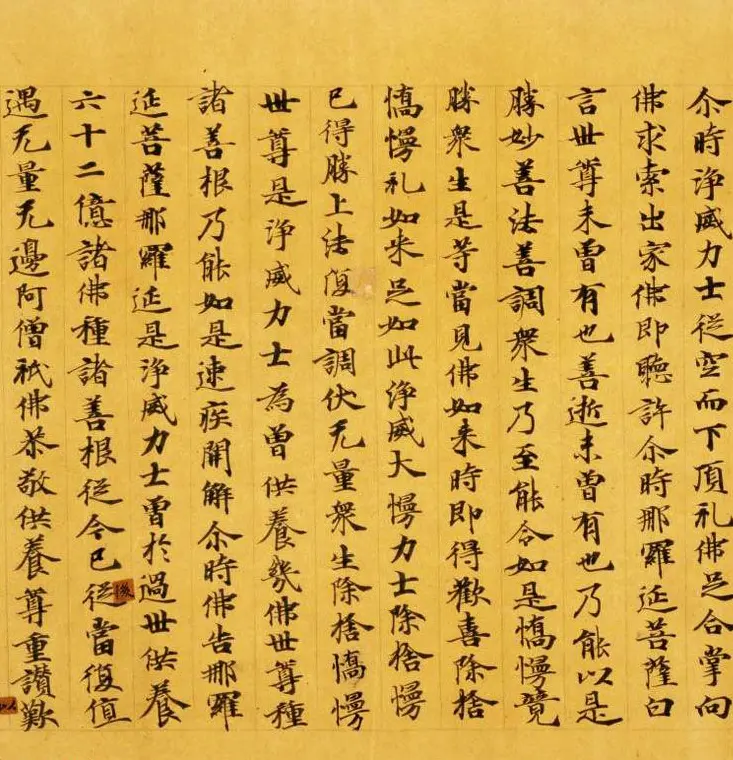 尒時淨威力士從空而下頂礼佛足合掌向
佛求索出家佛即聽許尒時那羅延菩薩白
言世尊未曾有也善逝未曾有也乃能以是
勝妙善法善調衆生乃至能令如是憍慢覺
勝衆生是等當見佛如來時即得歡喜除捨
憍慢礼如來足如此淨威大慢力士除捨慢
已得勝上法復當調伏无量衆生除捨憍慢
世尊是淨威力士為曾供養幾佛世尊種
諸善根乃能如是速疾開解尒時佛告那羅
延菩薩那羅延是淨威力士曾於過世供養
六十二億諸佛種諸善根從今已從當復值
後
遇无量无邊阿僧祇佛恭敬供養尊重讚歎